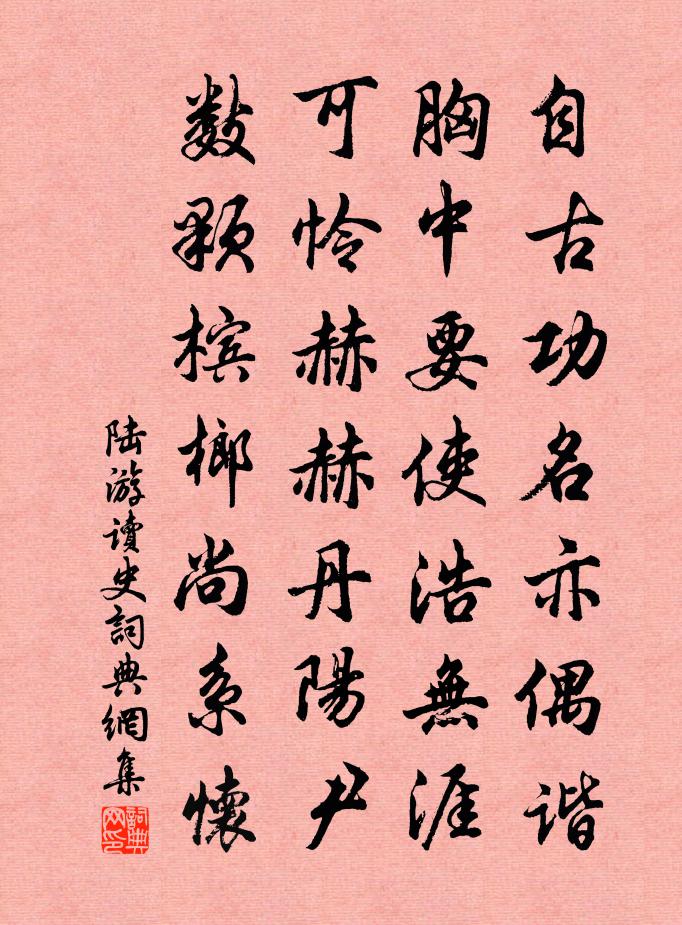 自古功名亦偶谐
胸中要使浩無涯
可怜赫赫丹陽尹
数颗槟榔尚系懷
陆游读史詞典網集
詞典网印